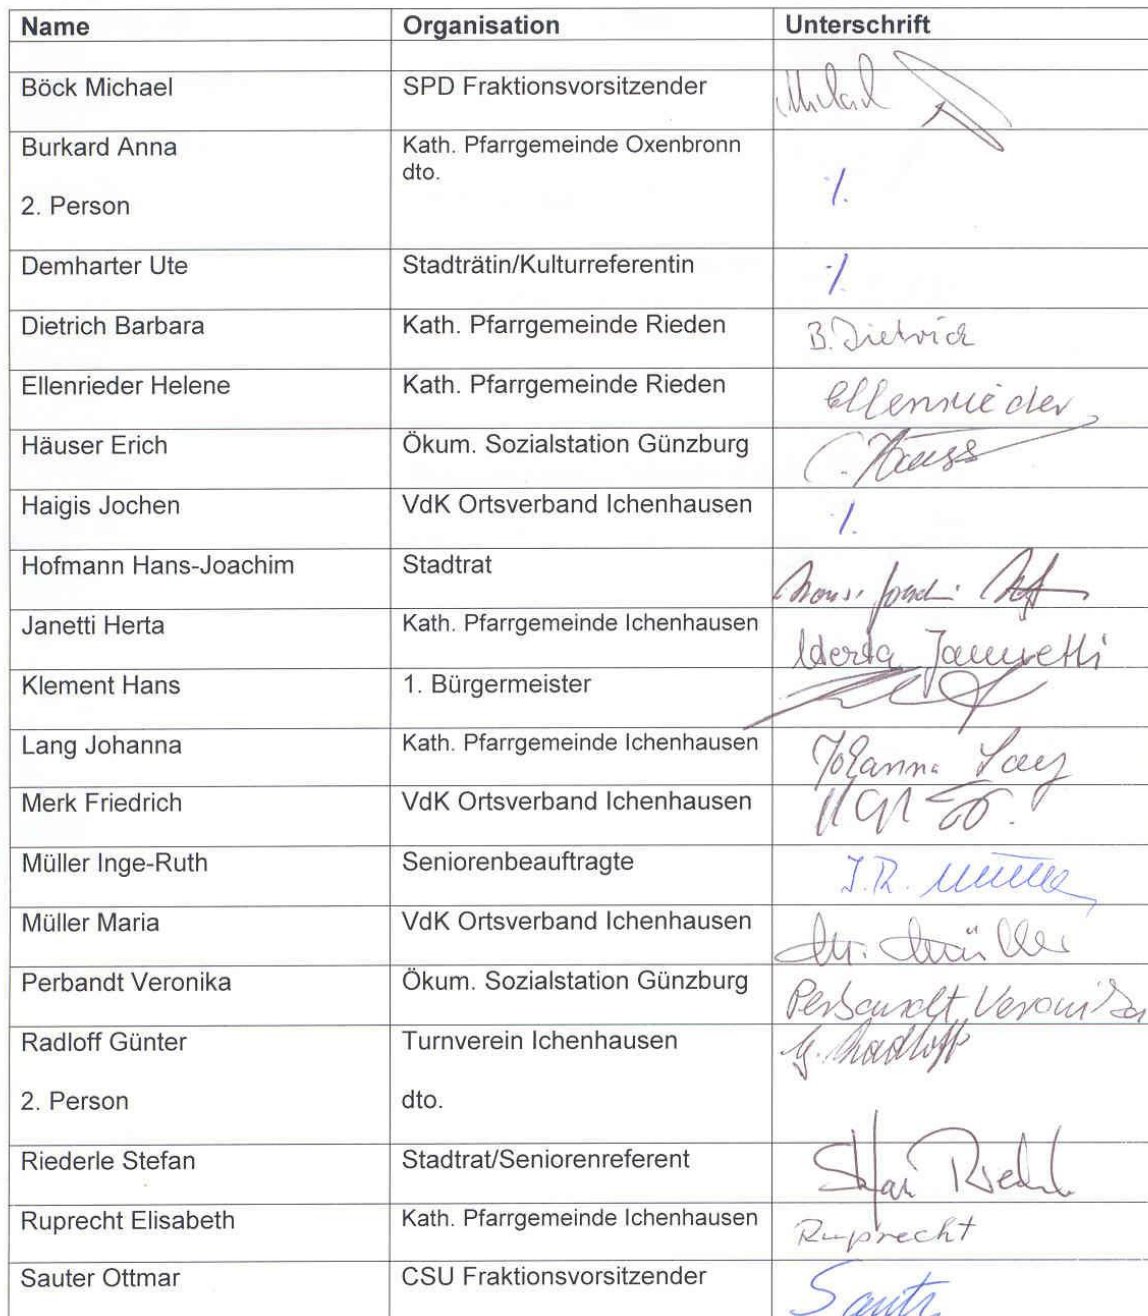 Name Organisation Unterschrift
Böck Michael SPD Fraktionsvorsitzender
Burkard Anna Kath. Pfarrgemeinde Oxenbronn
dto.
2. Person ./.
Demharter Ute Stadträtin/Kulturreferentin ./.
Dietrich Barbara Kath. Pfarrgemeinde Rieden B. Dietrich
Ellenrieder Helene Kath. Pfarrgemeinde Rieden Ellenrieder
Häuser Erich Ökum. Sozialstation Günzburg
Haigis Jochen VdK Ortsverband Ichenhausen ./.
Hofmann Hans-Joachim Stadtrat
Janetti Herta Kath. Pfarrgemeinde Ichenhausen Herta Jannetti
Klement Hans 1. Bürgermeister
Lang Johanna Kath. Pfarrgemeinde Ichenhausen Johanna Lang
Merk Friedrich VdK Ortsverband Ichenhausen
Müller Inge-Ruth Seniorenbeauftragte I.R. Müller
Müller Maria VdK Ortsverband Ichenhausen M. Müller
Perbandt Veronika Ökum. Sozialstation Günzburg Perbandt Veronika
Radloff Günter Turnverein Ichenhausen G. Radloff
2. Person dto.
Riederle Stefan Stadtrat/Seniorenreferent Stefan
Ruprecht Elisabeth Kath. Pfarrgemeinde Ichenhausen Ruprecht
Sauter Ottmar CSU Fraktionsvorsitzender Sauter